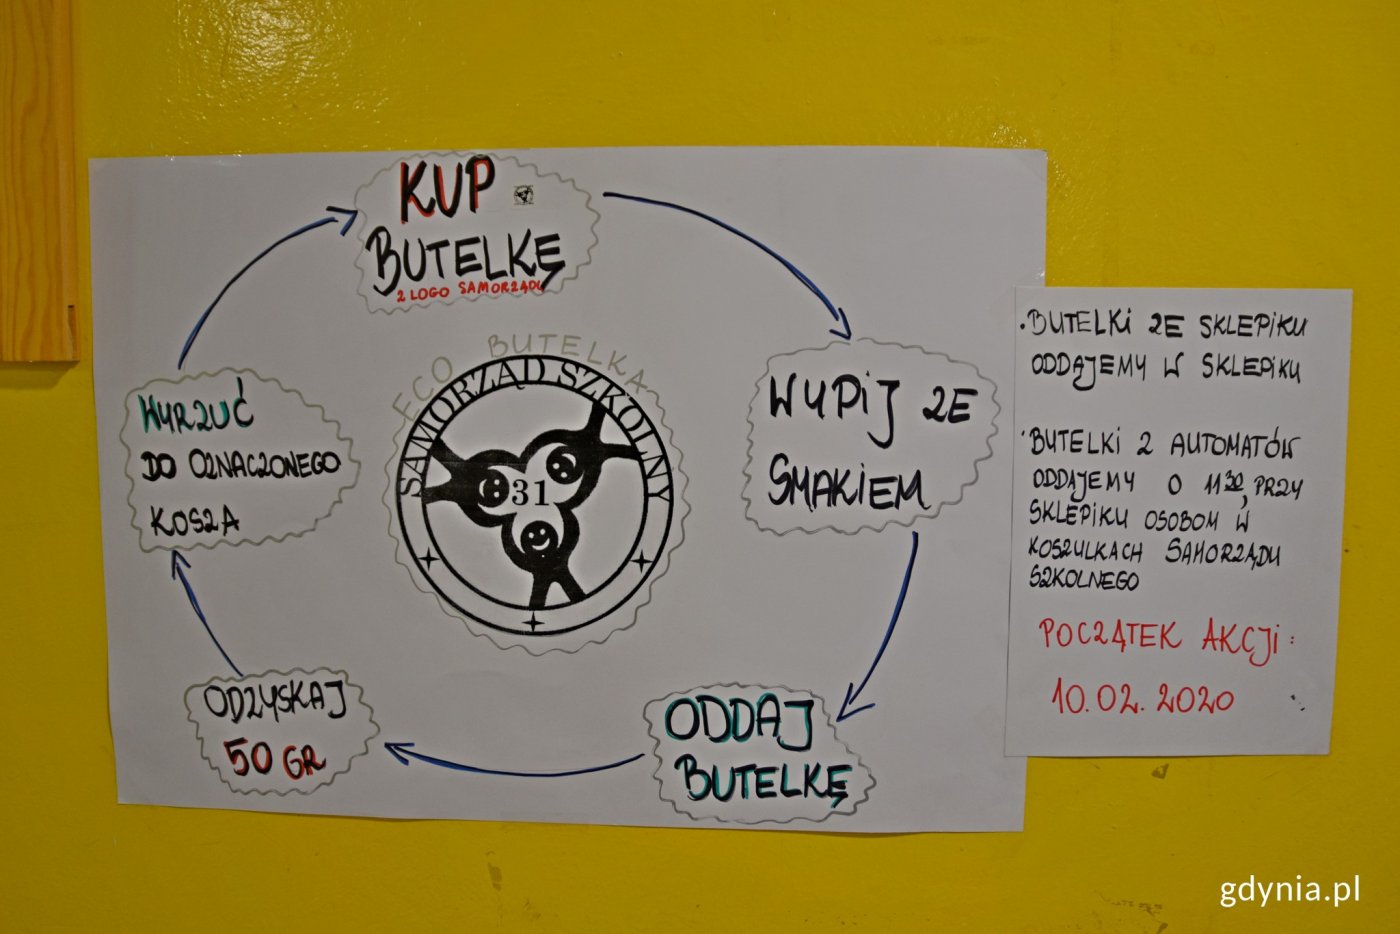 KUP
BUTELKĘ
Z LOGO SAMORZĄDU
WYPIJ ZE
SMAKIEM
ODDAJ
BUTELKĘ
ODZYSKAJ
50 GR
WYRZUĆ
DO OZNACZONEGO
KOSZA
ECO BUTELKA
SAMORZĄD SZKOLNY
31
• BUTELKI ZE SKLEPIKU
ODDAJEMY W SKLEPIKU
• BUTELKI Z AUTOMATÓW
ODDAJEMY O 11:30, PRZY
SKLEPIKU OSOBOM W
KOSZULKACH SAMORZĄDU
SZKOLNEGO
POCZĄTEK AKCJI:
10.02.2020
gdynia.pl